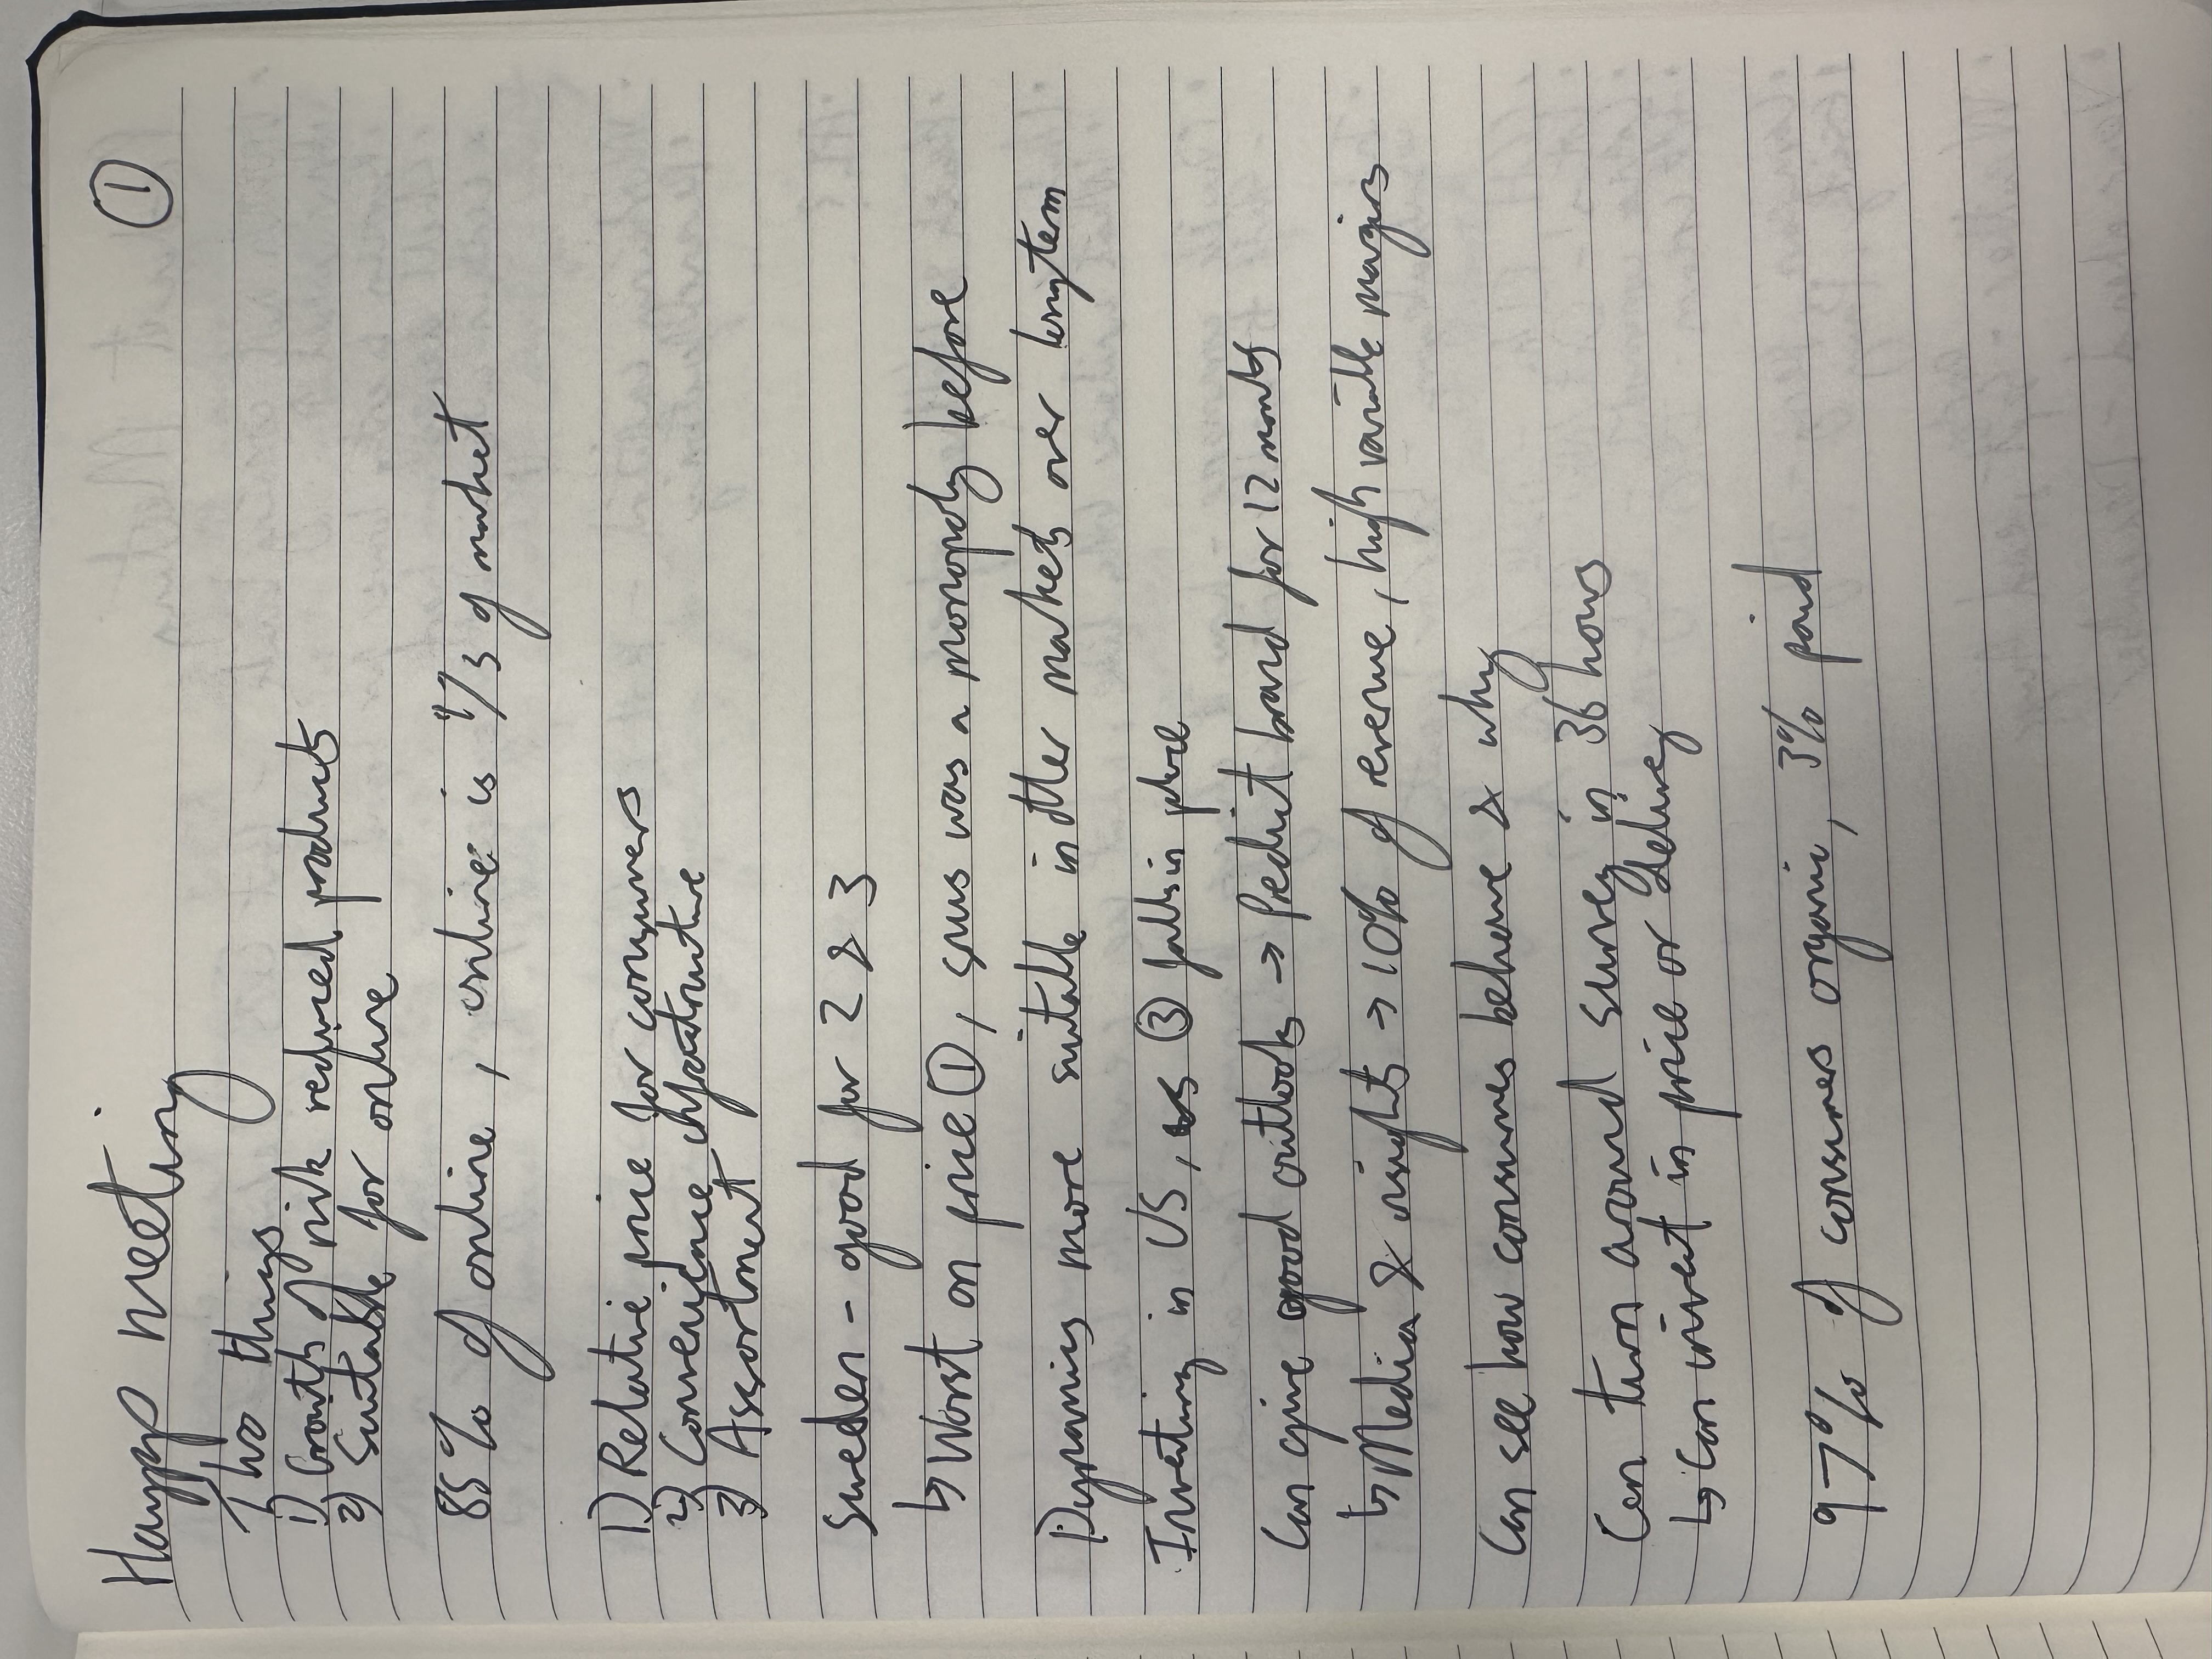 Haypp meeting
①
Two things
1) Growth of risk reduced products
2) Suitable for online
85% of online, online is 1/3 of market
1) Relative price for consumers
2) Convenience infrastructure
3) Assortment
Sweden - good for 2 & 3
↳ Worst on price ①, snus was a monopoly before
Dynamics more suitable in other markets over long term
Investing in US, as ③ falls in place
Can give good outlooks → Predict brand for 12 months
↳ Media & insights → 10% of revenue, high variable margins
Can see how consumers behave & why
Can turn around survey in 36 hours
↳ Can invest in price or delivery
97% of consumers organic, 3% paid